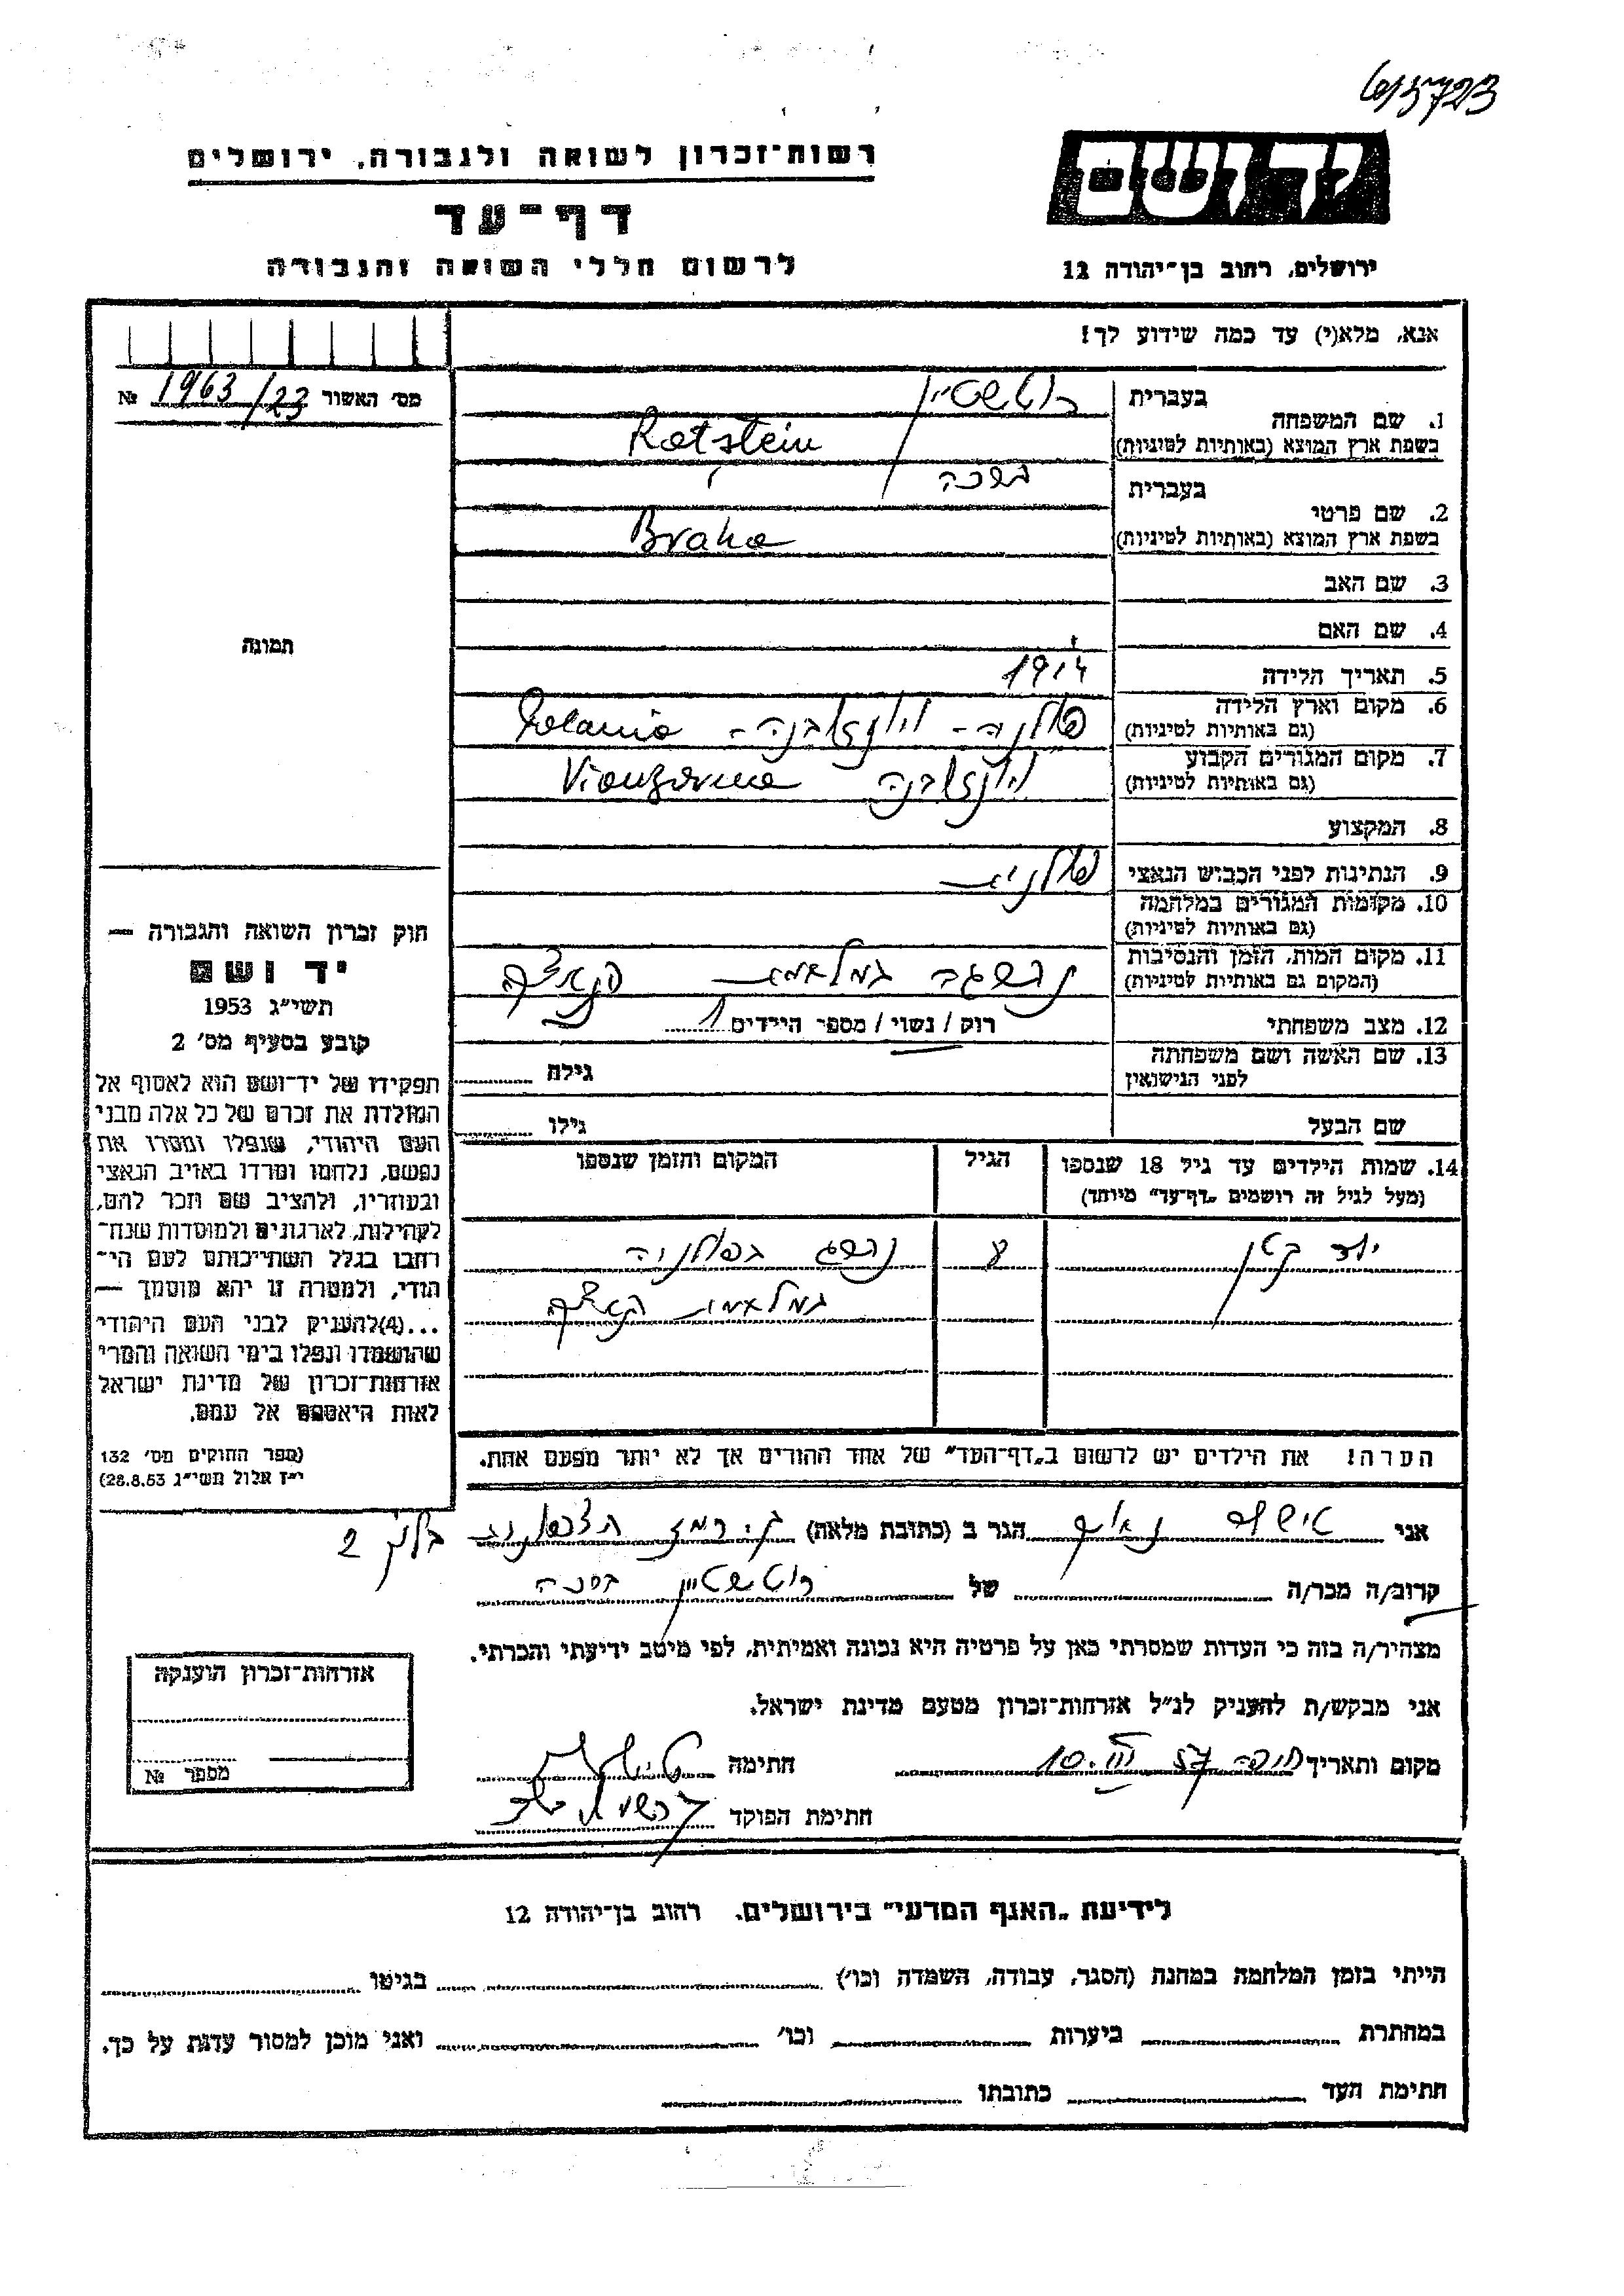 615723
רשות-זכרון לשואה ולגבורה, ירושלים
דף-עד
לרשום חללי השואה והגבורה
יד ושם
ירושלים, רחוב בן-יהודה 12
אנא, מלא(י) עד כמה שידוע לך!
מס' האשור 1963/23 №
1. שם המשפחה
בעברית רוטשטיין
בשפת ארץ המוצא (באותיות לטיניות) Rotstein
2. שם פרטי
בעברית ברכה
בשפת ארץ המוצא (באותיות לטיניות) Braha
3. שם האב
4. שם האם
תמונה
5. תאריך הלידה 1914
6. מקום וארץ הלידה
(גם באותיות לטיניות) פולניה - - Polania
7. מקום המגורים הקבוע
(גם באותיות לטיניות)
8. המקצוע
9. הנתינות לפני הכבוש הנאצי פולנית
10. מקומות המגורים במלחמה
(גם באותיות לטיניות)
11. מקום המות, הזמן והנסיבות
(המקום גם באותיות לטיניות) נהרגה במלחמת
12. מצב משפחתי רוק / נשוי / מספר הילדים 1
13. שם האשה ושם משפחתה
לפני הנישואין גילה
שם הבעל גילו
14. שמות הילדים עד גיל 18 שנספו
(מעל לגיל זה רושמים „דף-עד" מיוחד)
הגיל
המקום והזמן שנספו
ילד קטן נהרג בפולניה
במלחמת
הערה! את הילדים יש לרשום ב„דף-העד" של אחד ההורים אך לא יותר מפעם אחת.
חוק זכרון השואה והגבורה —
יד ושם
תשי"ג 1953
קובע בסעיף מס' 2
תפקידו של יד-ושם הוא לאסוף אל
המולדת את זכרם של כל אלה מבני
העם היהודי, שנפלו ומסרו את
נפשם, נלחמו ומרדו באויב הנאצי
ובעוזריו, ולהציב שם וזכר להם,
לקהילות, לארגונים ולמוסדות שנח-
רחבו בגלל השתייכותם לעם הי-
הודי, ולמטרה זו יהא מוסמך —
...(4)להעניק לבני העם היהודי
שהושמדו ונפלו בימי השואה והמרי
אזרחות-זכרון של מדינת ישראל
לאות היאספם אל עמם.
(ספר החוקים מס' 132
י"ז אלול תשי"ג 28.8.53)
אני הגר ב (כתובת מלאה) בלוק 2
קרוב/ה מכר/ה של רוטשטיין ברכה
מצהיר/ה בזה כי העדות שמסרתי כאן על פרטיה היא נכונה ואמיתית, לפי מיטב ידיעתי והכרתי.
אני מבקש/ת להעניק לנ"ל אזרחות-זכרון מטעם מדינת ישראל.
מקום ותאריך חיפה 10.III 57 חתימה
חתימת הפוקד
אזרחות-זכרון הוענקה
מספר №
לידיעת „האגף המדעי" בירושלים, רחוב בן-יהודה 12
הייתי בזמן המלחמה במחנה (הסגר, עבודה, השמדה וכו') בגיטו
במחתרת ביערות וכו' ואני מוכן למסור עדות על כך.
חתימת העד כתובתו